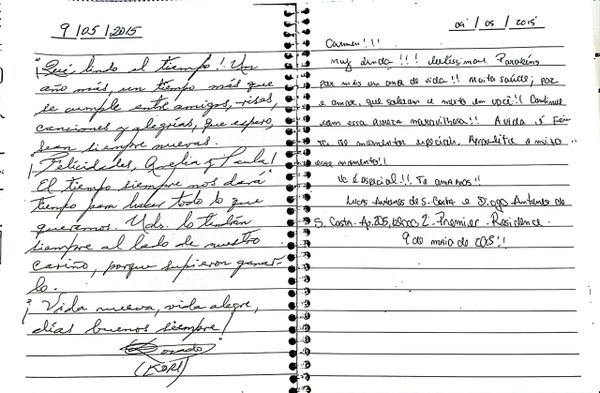 9/05/2015
¡Qué lindo el tiempo! Un
año más, un tiempo más que
se cumple entre amigos, risas,
canciones y alegrías, que espero,
sean siempre nuevas.
¡Felicidades, Amelia y Paula!
El tiempo siempre nos dará
tiempo para hacer todo lo que
queramos. Uds. lo tendrán
siempre al lado de nuestro
cariño, porque supieron ganar-
lo.
¡Vida nueva, vida alegre,
días buenos siempre!
(KORI)
09/05/2015
Carmen!!!
Muy linda!!! Parabéns
por más um ano de vida!! Muita saúde, paz
e amor, que sabemos e muito em você!! Continue
com essa alegria maravilhosa!! A vida é fei
ta de momentos especiais, Aproveite e muito
esse momento!!
Vc é especial!! Te amamos!!
Lucas Antonio da S. Costa e Diogo Antonio da
S. Costa. Ap. 205, Bloco 2. Premier Residence.
9 de maio de 2015!!